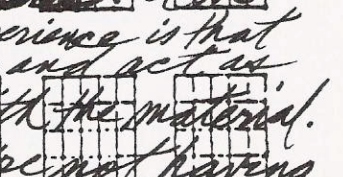 erience is that
and act as
th the material.
re not having